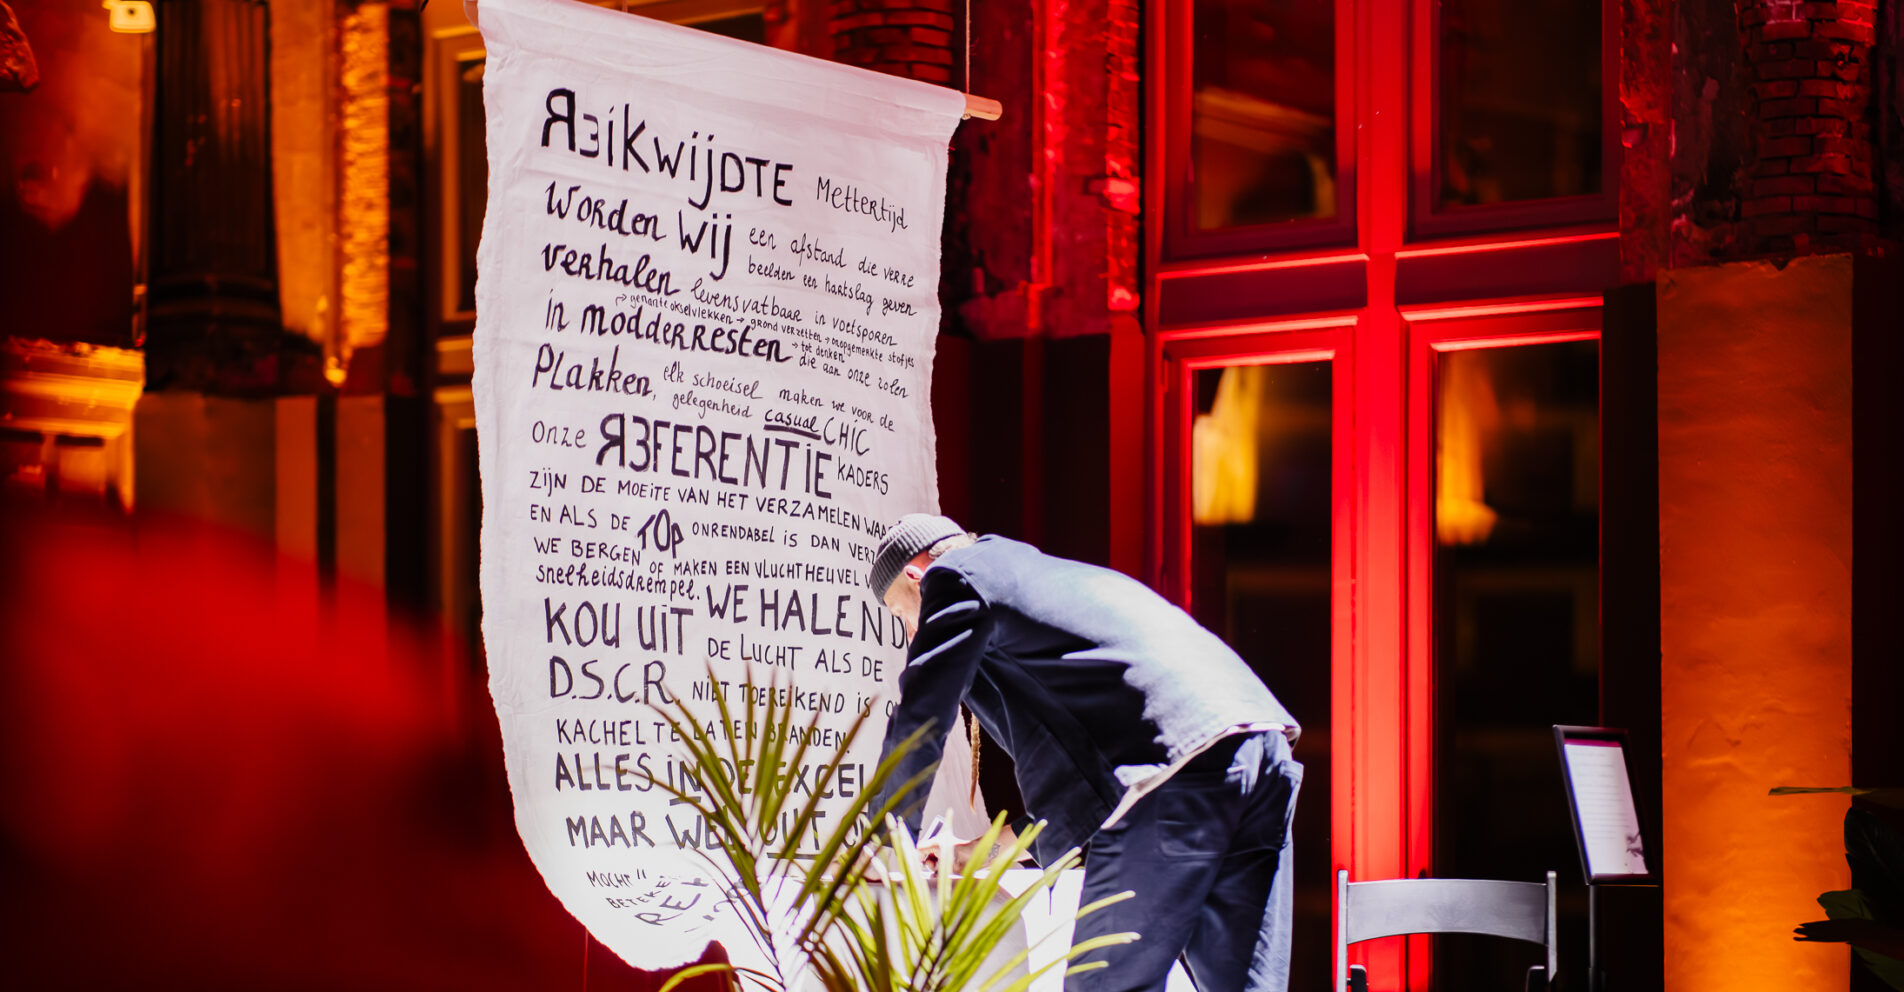 REIKWIJDTE Mettertijd
Worden Wij een afstand die verre
verhalen beelden een hartslag geven
levensvatbaar in voetsporen
→ genante okselvlekken → grond verzetten → onopgemerkte stofjes
in modderresten → tot denken
die aan onze zolen
Plakken, elk schoeisel maken we voor de
gelegenheid casual CHIC
onze REFERENTIE KADERS
ZIJN DE MOEITE VAN HET VERZAMELEN WAA
EN ALS DE TOP ONRENDABEL IS DAN VERZ
WE BERGEN OF MAKEN EEN VLUCHTHEUVEL V
snelheidsdrempel. WE HALEN D
KOU UIT DE LUCHT ALS DE
D.S.C.R. NIET TOEREIKEND IS O
KACHEL TE LATEN BRANDEN.
ALLES IN DE EXCEL
MAAR WEL OUT OF
MOCHT